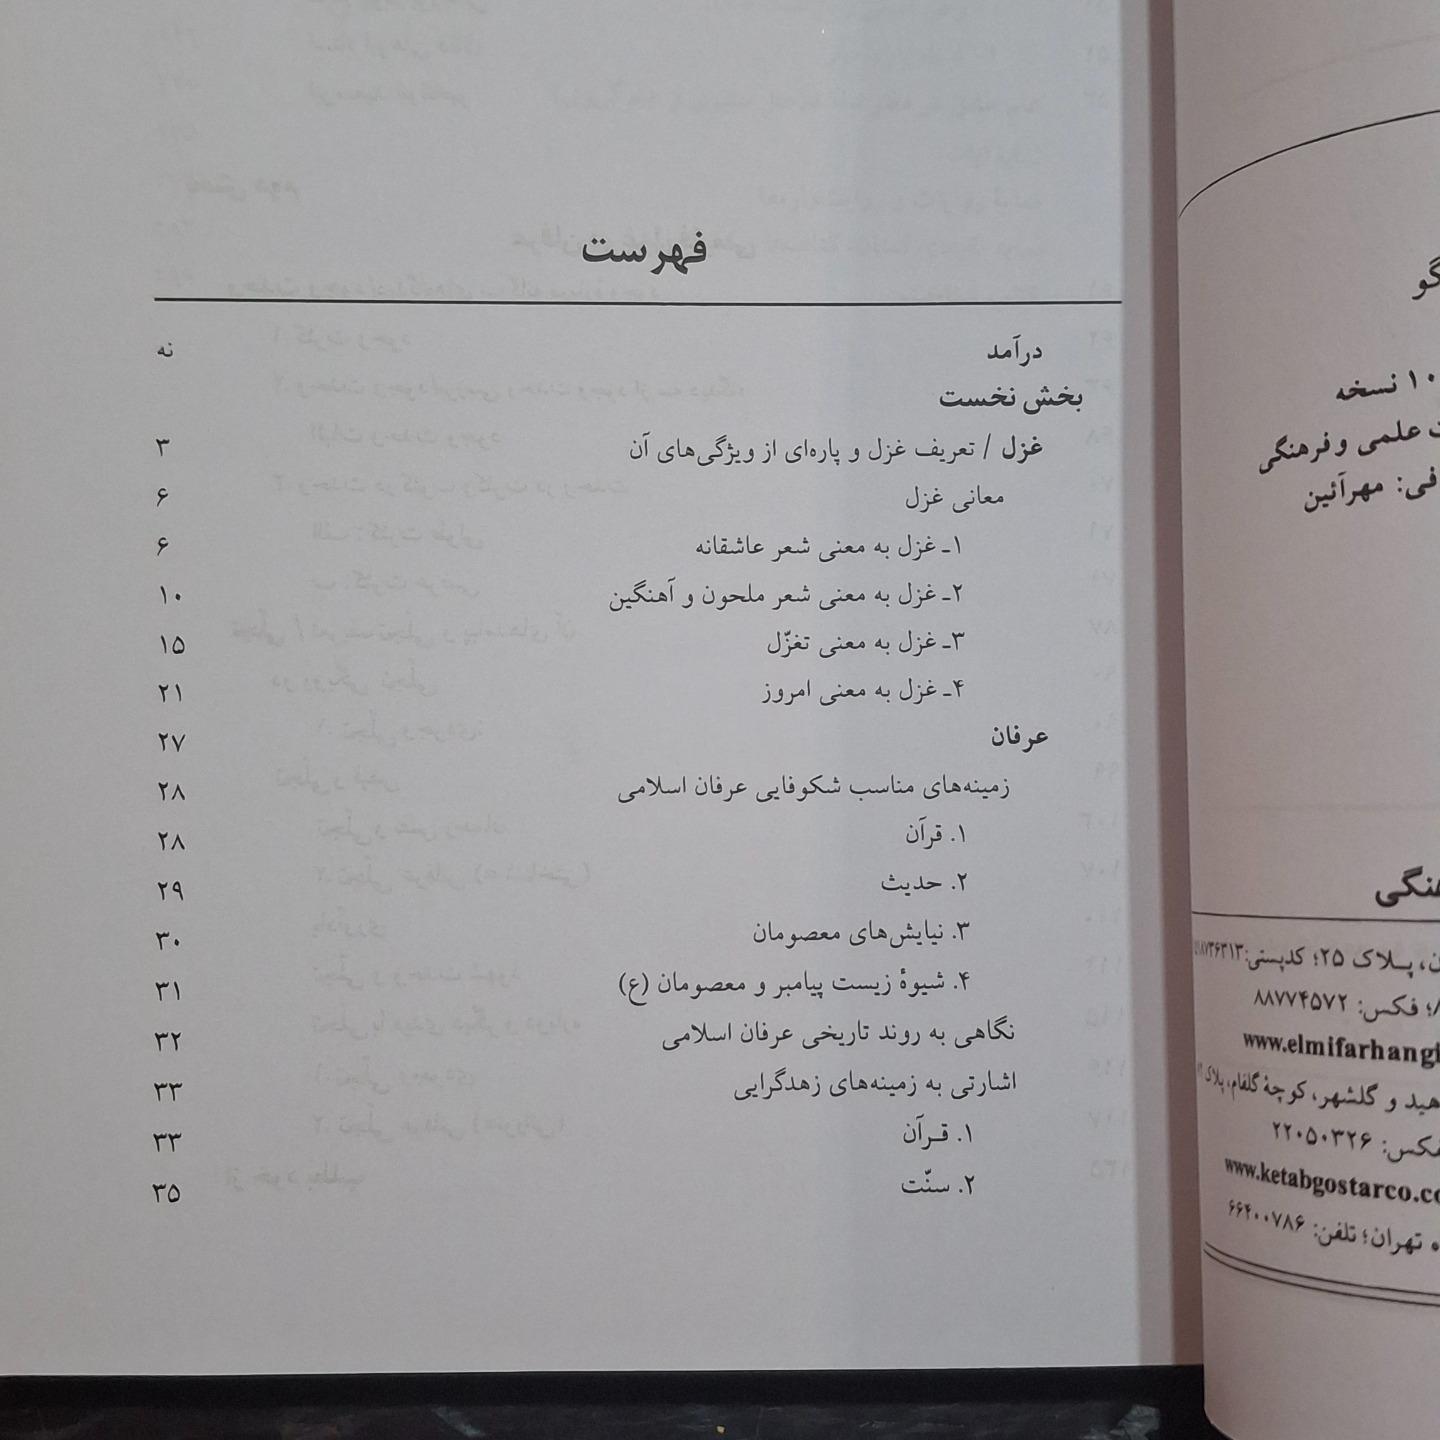 فهرست
درآمد نه
بخش نخست
غزل / تعریف غزل و پاره‌ای از ویژگی‌های آن ۳
معانی غزل ۶
۱ـ غزل به معنی شعر عاشقانه ۶
۲ـ غزل به معنی شعر ملحون و آهنگین ۱۰
۳ـ غزل به معنی تغزّل ۱۵
۴ـ غزل به معنی امروز ۲۱
عرفان ۲۷
زمینه‌های مناسب شکوفایی عرفان اسلامی ۲۸
۱. قرآن ۲۸
۲. حدیث ۲۹
۳. نیایش‌های معصومان ۳۰
۴. شیوهٔ زیست پیامبر و معصومان (ع) ۳۱
نگاهی به روند تاریخی عرفان اسلامی ۳۲
اشارتی به زمینه‌های زهدگرایی ۳۳
۱. قـرآن ۳۳
۲. سنّت ۳۵
گو
نسخه
علمی و فرهنگی
فی: مهرآئین
هنگی
ن، پـلاک ۲۵؛ کدپستی:
؛ فکس: ۸۸۷۷۴۵۷۲
www.elmifarhangi
هید و گلشهر، کوچهٔ گلفام، پلاک
فکس: ۲۲۰۵۰۳۲۶
www.ketabgostarco.co
تهران؛ تلفن: ۶۶۴۰۰۷۸۶